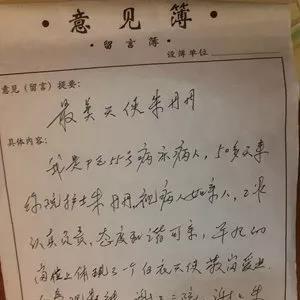 意见簿
·留言簿·
设簿单位
意见（留言）提要：
最美天使朱丹丹
具体内容：
我是 55号病床病人，50多天来
护士朱丹丹，视病人如亲人，工作
认真负责，态度和谐可亲，平凡的
岗位上体现了一个白衣天使敬岗爱业